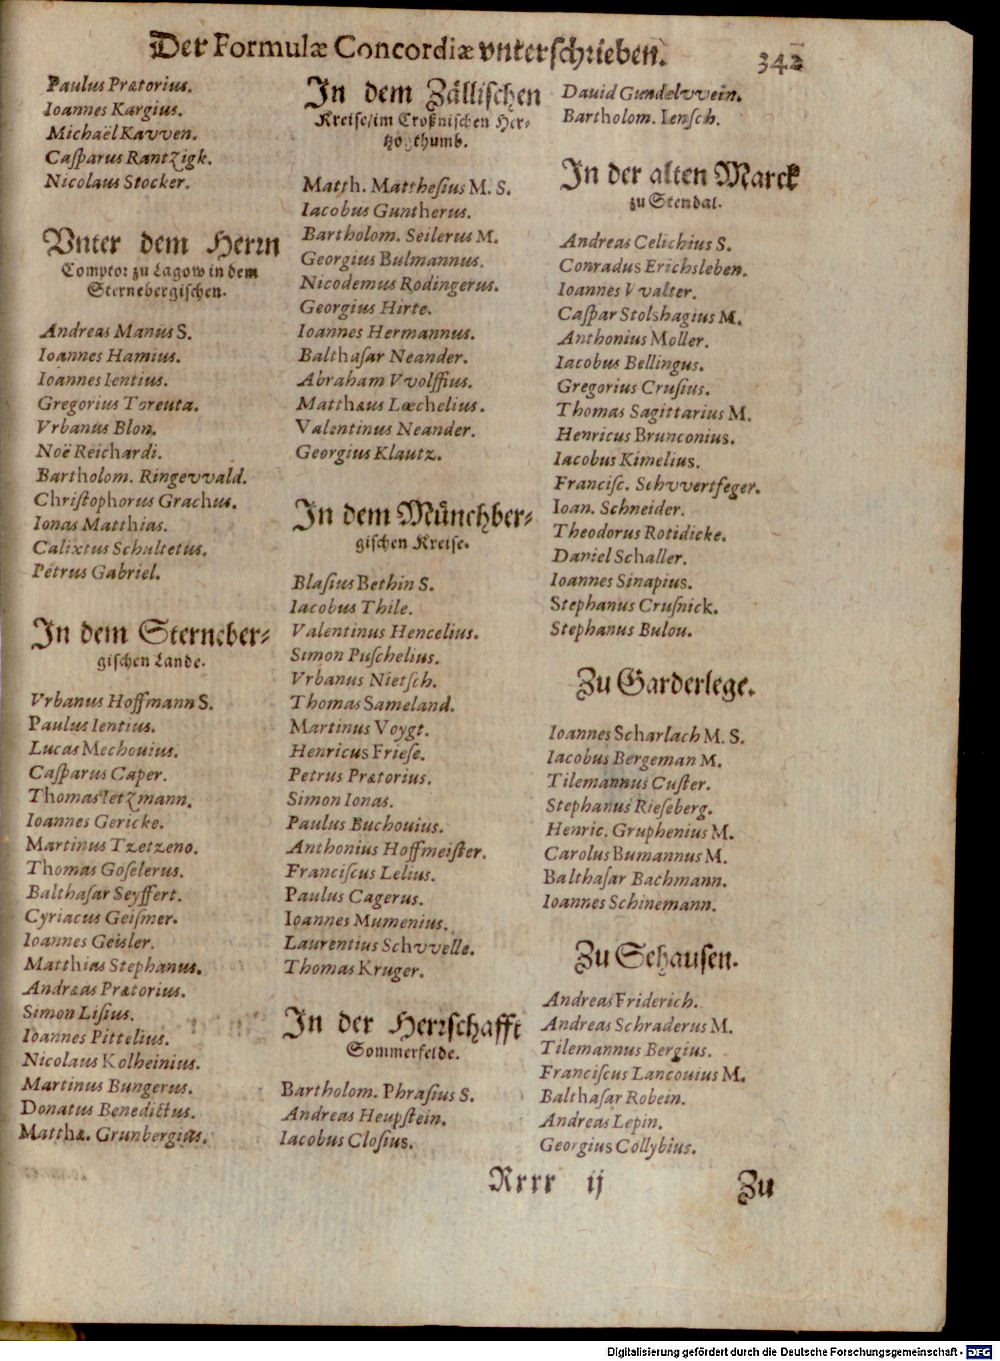 Der Formulæ Concordiæ vnterschrieben. 342
Paulus Prætorius.
Ioannes Kargius.
Michaël Kavven.
Caſparus Rantzigk.
Nicolaus Stocker.
Vnter dem Herrn
Comptor zu Lagow in dem
Sternebergischen.
Andreas Manus S.
Ioannes Hamius.
Ioannes Ientius.
Gregorius Toreuta.
Vrbanus Blon.
Noë Reichardi.
Bartholom. Ringevvald.
Chriſtophorus Grachus.
Ionas Matthias.
Calixtus Schultetus.
Petrus Gabriel.
In dem Sterneber⸗
gischen Lande.
Vrbanus Hoffmann S.
Paulus Ientius.
Lucas Mechouius.
Caſparus Caper.
Thomas Ietzmann.
Ioannes Gericke.
Martinus Tzetzeno.
Thomas Goſelerus.
Balthaſar Seyffert.
Cyriacus Geiſmer.
Ioannes Geisler.
Matthias Stephanus.
Andræas Prætorius.
Simon Liſius.
Ioannes Pittelius.
Nicolaus Kolheinius.
Martinus Bungerus.
Donatus Benedictus.
Matthæ. Grunbergius.
In dem Zällischen
Kreise/im Croßnischen Her⸗
tzogthumb.
Matth. Mattheſius M. S.
Iacobus Guntherus.
Bartholom. Seilerus M.
Georgius Bulmannus.
Nicodemus Rodingerus.
Georgius Hirte.
Ioannes Hermannus.
Balthaſar Neander.
Abraham Vvolffius.
Matthæus Lœchelius.
Valentinus Neander.
Georgius Klautz.
In dem Münchber⸗
gischen Kreise.
Blaſius Bethin S.
Iacobus Thile.
Valentinus Hencelius.
Simon Puſchelius.
Vrbanus Nietſch.
Thomas Sameland.
Martinus Voygt.
Henricus Frieſe.
Petrus Prætorius.
Simon Ionas.
Paulus Buchouius.
Anthonius Hoffmeiſter.
Franciſcus Lelius.
Paulus Cagerus.
Ioannes Mumenius.
Laurentius Schvvelle.
Thomas Kruger.
In der Herrschafft
Sommerfelde.
Bartholom. Phraſius S.
Andreas Heupſtein.
Iacobus Cloſius.
Dauid Gundelvvein.
Bartholom. Ienſch.
In der alten Marck
zu Stendal.
Andreas Celichius S.
Conradus Erichsleben.
Ioannes Vvalter.
Caſpar Stolshagius M.
Anthonius Moller.
Iacobus Bellingus.
Gregorius Cruſius.
Thomas Sagittarius M.
Henricus Brunconius.
Iacobus Kimelius.
Franciſc. Schvvertfeger.
Ioan. Schneider.
Theodorus Rotidicke.
Daniel Schaller.
Ioannes Sinapius.
Stephanus Cruſnick.
Stephanus Bulou.
Zu Garderlege.
Ioannes Scharlach M. S.
Iacobus Bergeman M.
Tilemannus Cuſter.
Stephanus Rieſeberg.
Henric. Gruphenius M.
Carolus Bumannus M.
Balthaſar Bachmann.
Ioannes Schinemann.
Zu Sehausen.
Andreas Friderich.
Andreas Schraderus M.
Tilemannus Bergius.
Franciſcus Lancouius M.
Balthaſar Robein.
Andreas Lepin.
Georgius Collybius.
Rrrr ij Zu
Digitalisierung gefördert durch die Deutsche Forschungsgemeinschaft - DFG